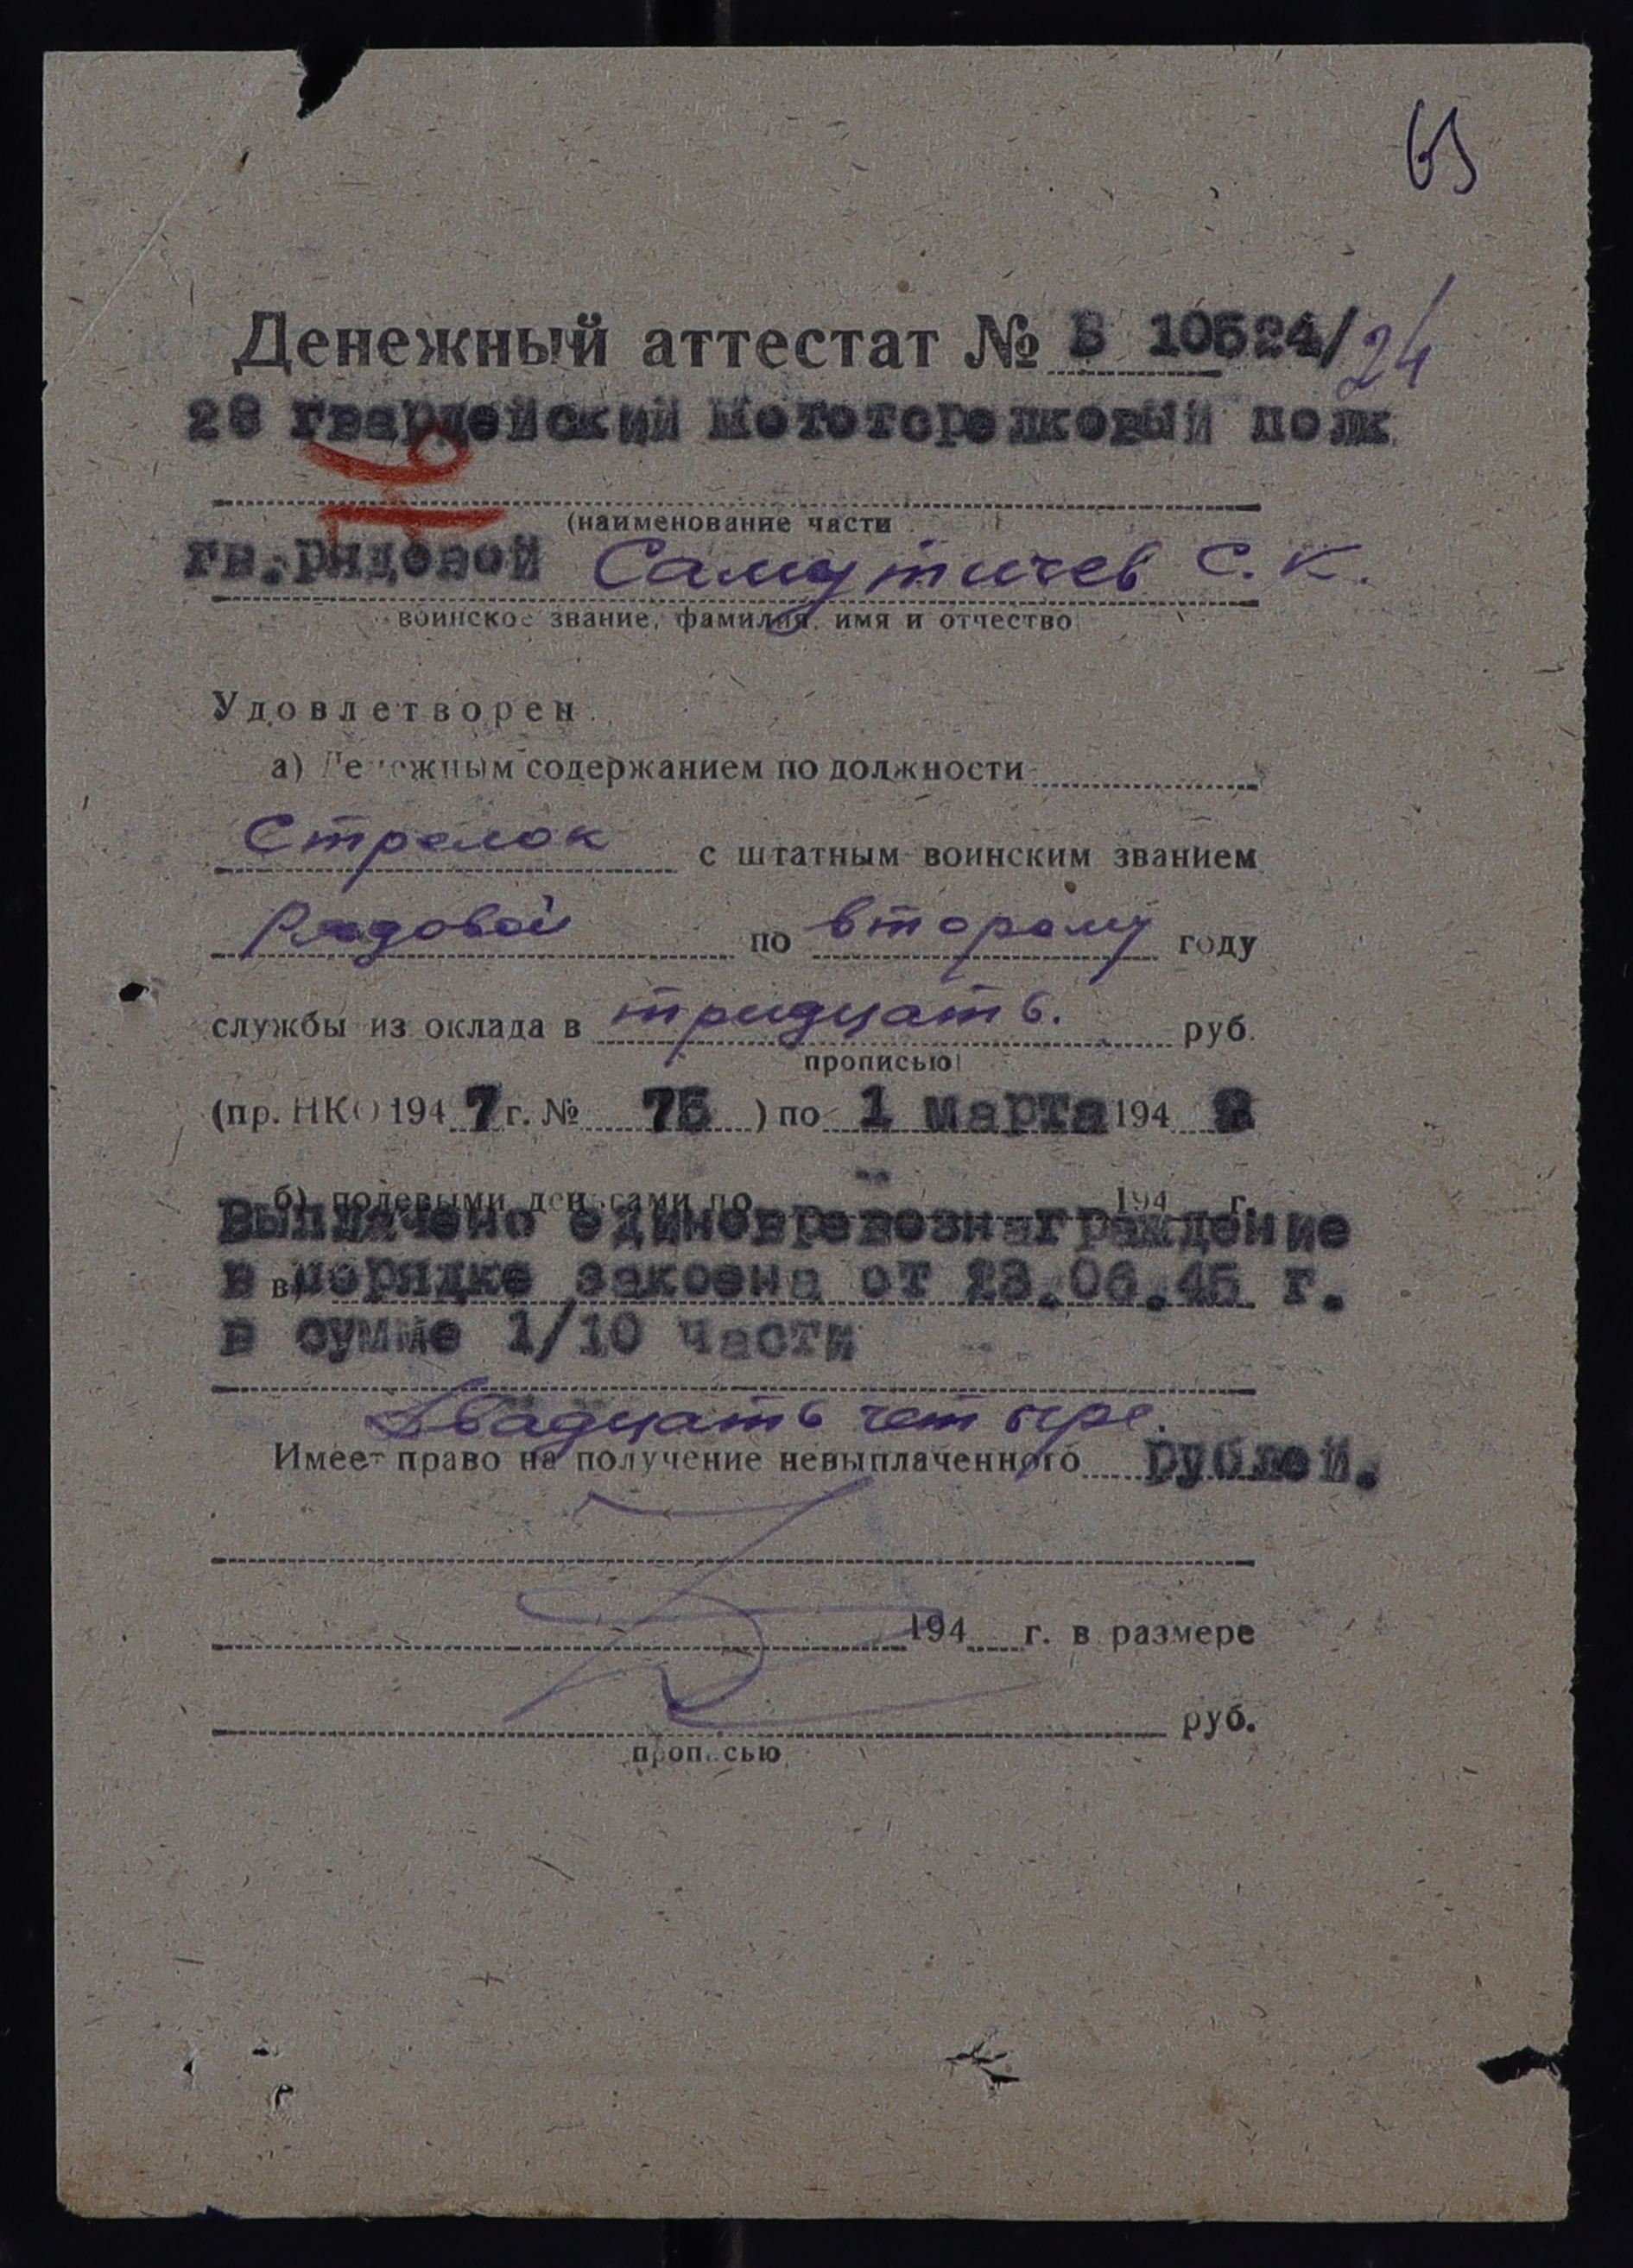 63
Денежный аттестат № В 10524/24
28 гвардейский мототсрелковый полк
16
(наименование части
гв.рядовой Самутичев С.К.
воинское звание, фамилия, имя и отчество
Удовлетворен
а) Денежным содержанием по должности
Стрелок с штатным воинским званием
Рядовой по второму году
службы из оклада в тридцать. руб.
прописью
(пр. НКО 1947 г. № 75 ) по 1 марта 194
б) полевыми деньгами по 194 г.
Выплачено единовревознаграждение
в) в порядке закоена от 23.06.45 г.
в сумме 1/10 части
Двадцать четыре.
Имеет право на получение невыплаченного рублей.
194 г. в размере
руб.
прописью